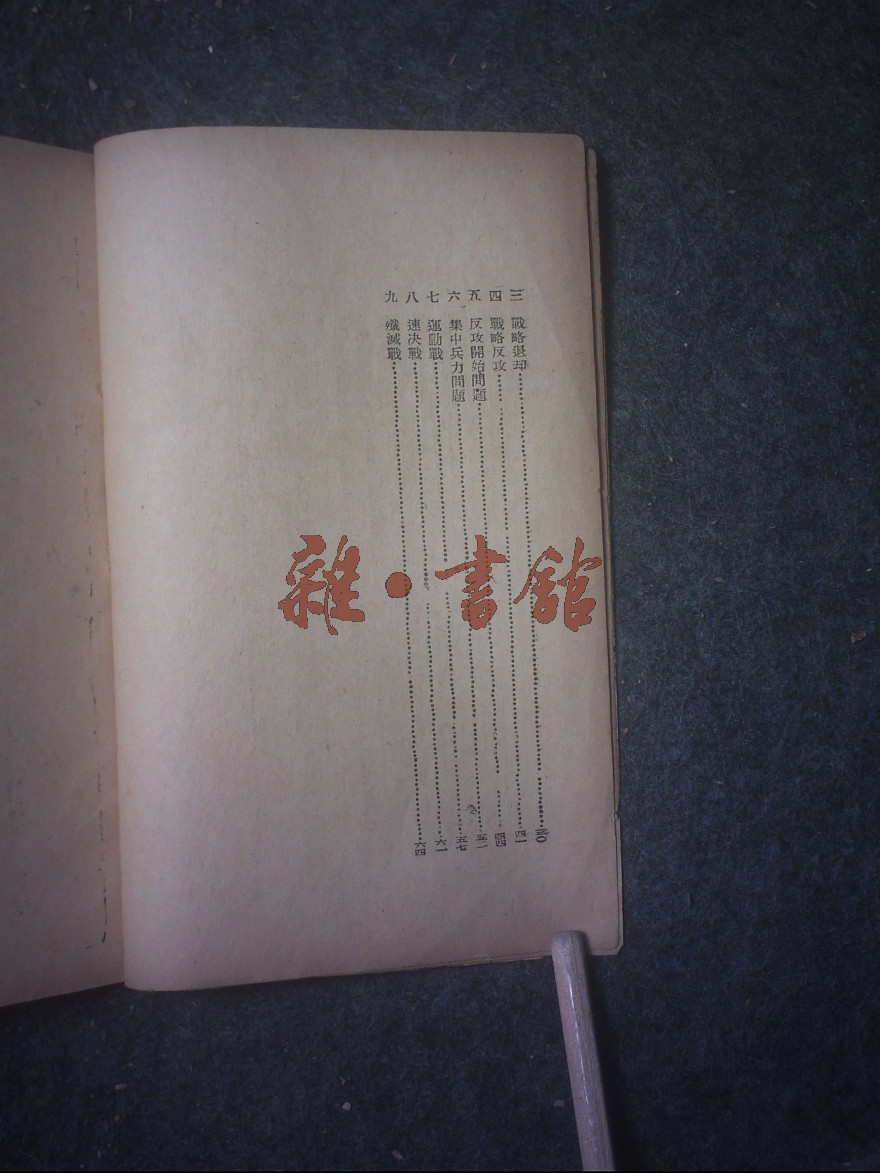 三 戰略退却……三〇
四 戰略反攻……四一
五 反攻開始問題……四四
六 集中兵力問題……
七 運動戰……五七
八 速决戰……六一
九 殲滅戰……六四
雜·書館